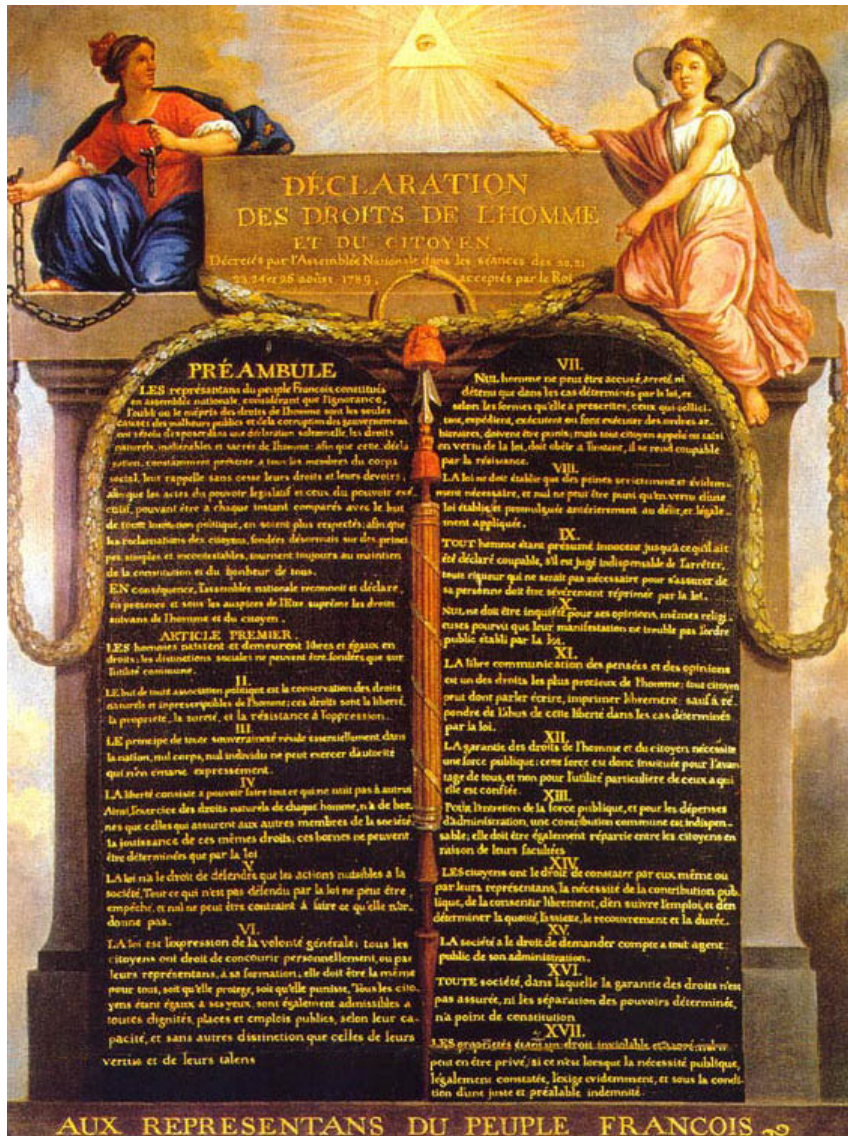 DÉCLARATION
DES DROITS DE L'HOMME
ET DU CITOYEN,
Décretés par l'Assemblée Nationale dans les séances des 20, 21
23, 24 et 26 août 1789,
acceptés par le Roi
PRÉAMBULE
LES représentans du peuple François, constitués
en assemblée nationale, considérant que l'ignorance,
l'oubli ou le mépris des droits de l'homme sont les seules
causes des malheurs publics et de la corruption des gouvernemens
ont résolu d'exposer dans une déclaration solemnelle, les droits
naturels, inaliénables et sacrés de l'homme: afin que cette décla
ration, constamment présente a tous les membres du corps
social, leur rappelle sans cesse leurs droits et leurs devoirs;
afin que les actes du pouvoir législatif et ceux du pouvoir exé
cutif, pouvant être a chaque instant comparés avec le but
de toute institution politique, en soient plus respectés; afin que
les réclamations des citoyens, fondées désormais sur des princi
pes simples et incontestables, tournent toujours au maintien
de la constitution et du bonheur de tous.
EN conséquence, l'assemblée nationale reconnoit et déclare
en presence et sous les auspices de l'Etre suprême les droits
suivans de l'homme et du citoyen.
ARTICLE PREMIER.
LES hommes naissent et demeurent libres et égaux en
droits; les distinctions sociales ne peuvent être fondées que sur
l'utilité commune.
II.
LE but de toute association politique est la conservation des droits
naturels et imprescriptibles de l'homme; ces droits sont la liberté,
la propriété, la sureté, et la résistance à l'oppression.
III.
LE principe de toute souveraineté réside essentiellement dans
la nation, nul corps, nul individu ne peut exercer d'autorité
qui n'en émane expressement.
IV
LA liberté consiste a pouvoir faire tout ce qui ne nuit pas à autrui
Ainsi, l'exercice des droits naturels de chaque homme, n'a de bor-
nes que celles qui assurent aux autres membres de la société
la jouissance de ces mêmes droits; ces bornes ne peuvent
être déterminées que par la loi
V
LA loi n'a le droit de défendre que les actions nuisibles a la
société. Tout ce qui n'est pas défendu par la loi ne peut être
empêché, et nul ne peut être contraint à faire ce qu'elle n'or-
donne pas.
VI.
LA loi est l'expression de la volonté générale; tous les
citoyens ont droit de concourir personnellement, ou par
leurs représentans, à sa formation; elle doit être la même
pour tous, soit qu'elle protege, soit qu'elle punisse, Tous les cito-
yens étant égaux à ses yeux, sont également admissibles a
toutes dignités, places et emplois publics, selon leur ca-
pacité, et sans autres distinction que celles de leurs
vertus et de leurs talens
VII.
NUL homme ne peut être accusé, arreté, ni
détenu que dans les cas déterminés par la loi, et
selon les formes qu'elle a prescrites, ceux qui sollici-
tent, expédient, exécutent ou font exécuter des ordres ar-
bitraires, doivent être punis; mais tout citoyen appelé ou saisi
en vertu de la loi, doit obéir a l'instant, il se rend coupable
par la résistance.
VIII.
LA loi ne doit établir que des peines strictement et évidem-
ment nécessaire, et nul ne peut être puni qu'en vertu d'une
loi établie, et promulguée antérierement au délit, et légale-
ment appliquée.
IX.
TOUT homme étant présumé innocent jusqu'à ce qu'il ait
été déclaré coupable, s'il est jugé indispensable de l'arrêter,
toute rigueur qui ne serait pas nécessaire pour s'assurer de
sa personne doit être sévèrement réprimée par la loi.
X.
NUL ne doit être inquiété pour ses opinions, mêmes religi-
euses pourvu que leur manifestation ne trouble pas l'ordre
public établi par la loi.
XI.
LA libre communication des pensées et des opinions
est un des droits les plus precieux de l'homme; tout citoyen
peut donc parler écrire, imprimer librement: sauf à ré-
pondre de l'abus de cette liberté dans les cas déterminés
par la loi.
XII.
LA garantie des droits de l'homme et du citoyen nécessite
une force publique; cette force est donc instituée pour l'avan-
tage de tous, et non pour l'utilité particuliere de ceux a qui
elle est confiée.
XIII.
POUR l'entretien de la force publique, et pour les dépenses
d'administration, une contribution commune est indispen-
sable; elle doit être également répartie entre les citoyens en
raison de leurs facultées
XIV.
LES citoyens ont le droit de constater par eux même ou
par leurs représentans, la nécessité de la contribution pub-
lique, de la consentir librement, d'en suivre l'emploi, et d'en
déterminer la quotité, l'assiette, le recouvrement et la durée.
XV.
LA société a le droit de demander compte a tout agent
public de son administration.
XVI.
TOUTE société, dans laquelle la garantie des droits n'est
pas assurée, ni les séparation des pouvoirs déterminée,
n'a point de constitution
XVII.
LES proprietés étant un droit inviolable et sacré, nul ne
peut en être privé, si ce n'est lorsque la nécessité publique,
légalement constatée, l'exige evidemment, et sous la condi-
tion d'une juste et préalable indemnité.
AUX REPRESENTANS DU PEUPLE FRANCOIS